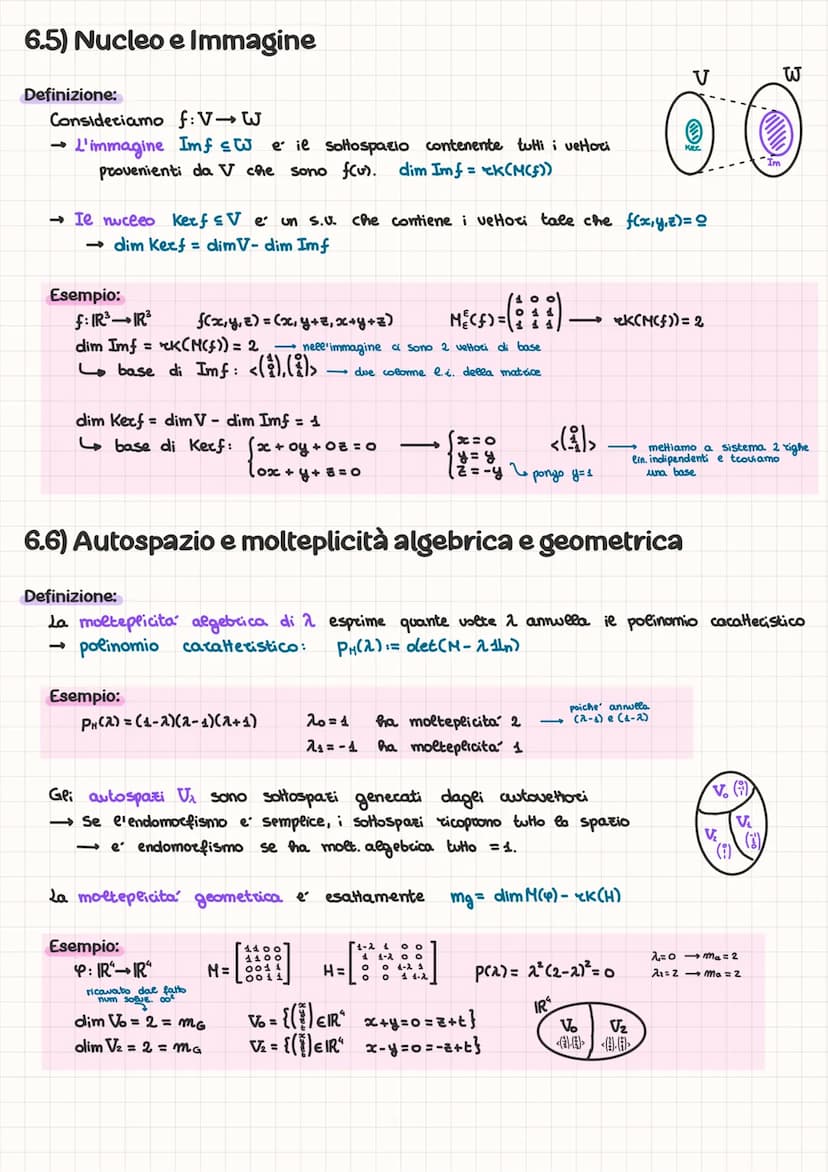 6.5) Nucleo e Immagine
V W
Definizione:
Consideriamo f: V → W
→ L'immagine Im f ⊆ W e' il sottospazio contenente tutti i vettori
provenienti da V che sono f(v). dim Im f = rk(M(f))
Ker Im
→ Il nucleo Ker f ⊆ V e' un s.v. che contiene i vettori tale che f(x,y,z) = 0
→ dim Ker f = dim V - dim Im f
Esempio:
f: ℝ³ → ℝ³ f(x,y,z) = (x, y+z, x+y+z) M_E^E(f) = (1 0 0 / 0 1 1 / 1 1 1) → rk(M(f)) = 2
dim Im f = rk(M(f)) = 2 → nell'immagine ci sono 2 vettori di base
↳ base di Im f: <(1 0 1), (0 1 1)> → due colonne l.i. della matrice
dim Ker f = dim V - dim Im f = 1
↳ base di Ker f: { x + 0y + 0z = 0 → { x = 0 <(0 1 -1)> → mettiamo a sistema 2 righe
y = y lin. indipendenti e troviamo
0x + y + z = 0 z = -y ↳ pongo y=1 una base
6.6) Autospazio e molteplicità algebrica e geometrica
Definizione:
La molteplicita' algebrica di λ esprime quante volte λ annulla il polinomio caratteristico
→ polinomio caratteristico: P_M(λ) := det(M - λ 1l_n)
Esempio:
P_M(λ) = (1-λ)(λ-1)(λ+1) λ₀ = 1 ha molteplicita' 2 → poiche' annulla (λ-1) e (1-λ)
λ₁ = -1 ha molteplicita' 1
Gli autospazi V_λ sono sottospazi generati dagli autovettori
→ Se l'endomorfismo e' semplice, i sottospazi ricoprono tutto lo spazio
→ e' endomorfismo se ha molt. algebrica tutto = 1.
V₀ V₁ V₂
La molteplicita' geometrica e' esattamente mg = dim M(φ) - rk(H)
Esempio:
φ: ℝ⁴ → ℝ⁴ M = [1 1 0 0 / 1 1 0 0 / 0 0 1 1 / 0 0 1 1] H = [1-λ 1 0 0 / 1 1-λ 0 0 / 0 0 1-λ 1 / 0 0 1 1-λ] P(λ) = λ²(2-λ)² = 0 λ=0 → ma = 2
λ₁=2 → ma = 2
ricavato dal fatto
dim V₀ = 2 = m_G V₀ = {(x y z t) ∈ ℝ⁴ x+y=0=z+t}
dim V₂ = 2 = m_G V₂ = {(x y z t) ∈ ℝ⁴ x-y=0=-z+t}
ℝ⁴
V₀ V₂